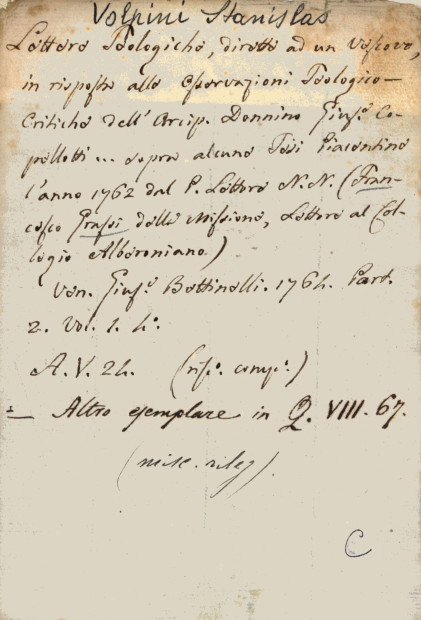 Volpini Stanislas
Lettere Teologiche, dirette ad un Vescovo,
in risposta alle Osservazioni Teologico-
Critiche dell'Arcip. Donnino Gius.e Co-
pellotti ... sopra alcune Tesi Piacentine
l'anno 1762 dal P. Lettore N. N. (Fran-
cesco Grassi della Missione, Lettore al Col-
legio Alberoniano.)
Ven. Gius.e Bettinelli. 1764. Part.
2. Vol. 1. 4°.
A. V. 24.
± Altro esemplare in Q. VIII. 67.
(misc. rileg).
C